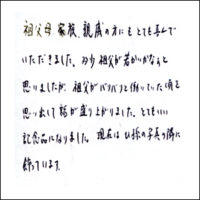 祖父母 家族、親戚の方にもとても喜んで
いただきました。多少祖父が若がいかなぁと
思いましたが、祖父がバリバリと働いていた頃を
思い出して話が盛り上がりました。とてもいい
記念品になりました。現在はひ孫の写真の隣に
飾っています。